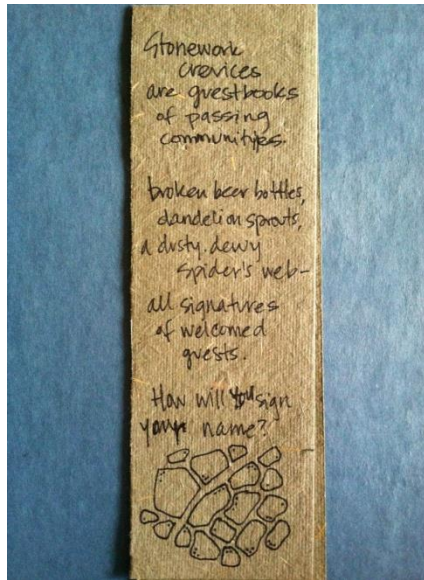 Stonework
crevices
are guestbooks
of passing
communities.
broken beer bottles,
dandelion sprouts,
a dusty. dewy
spider's web-
all signatures
of welcomed
guests.
How will you sign
your name?